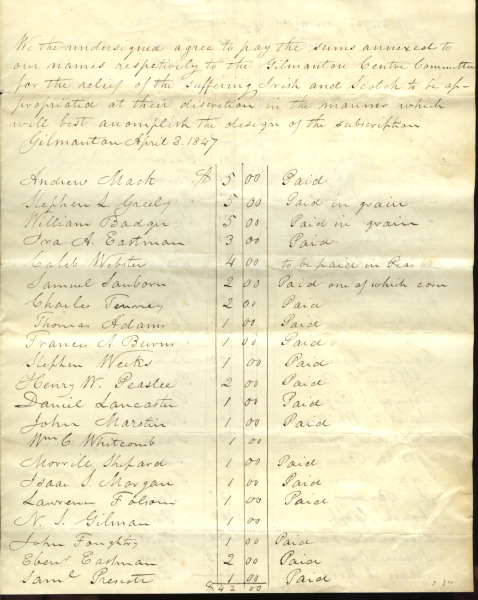 We the undersigned agree to pay the sums annexed to
our names respetively to the Gilmanton Centre Committee
for the relief of the suffering Irish and Scotch to be ap-
propriated at their discretion in the manner which
will best acomplish the design of the subscription
Gilmanton April 3. 1847
Andrew Mack $ 5 00 Paid
Stephen L Greely 5 00 Paid in grain
William Badger 5 00 Paid in grain
Ira A. Eastman 3 00 Paid
Caleb Webster 4 00 to be paid in Peas
Samuel Sanborn 2 00 Paid one of which corn
Charles Tenney 2 00 Paid
Thomas Adams 1 00 Paid
Francis A Burns 1 00 Paid
Stephen Weeks 1 00 Paid
Henry W. Peaslee 2 00 Paid
Daniel Lancaster 1 00 Paid
John Marston 1 00 Paid
Wm C. Whitcomb 1 00
Morrill Shepard 1 00 Paid
Isaac S. Morgan 1 00 Paid
Lawrence Folsom 1 00 Paid
N. S. Gilman 1 00
John 1 00 Paid
Ebenr Eastman 2 00 Paid
Saml Prescott 1 00 Paid
$42 00